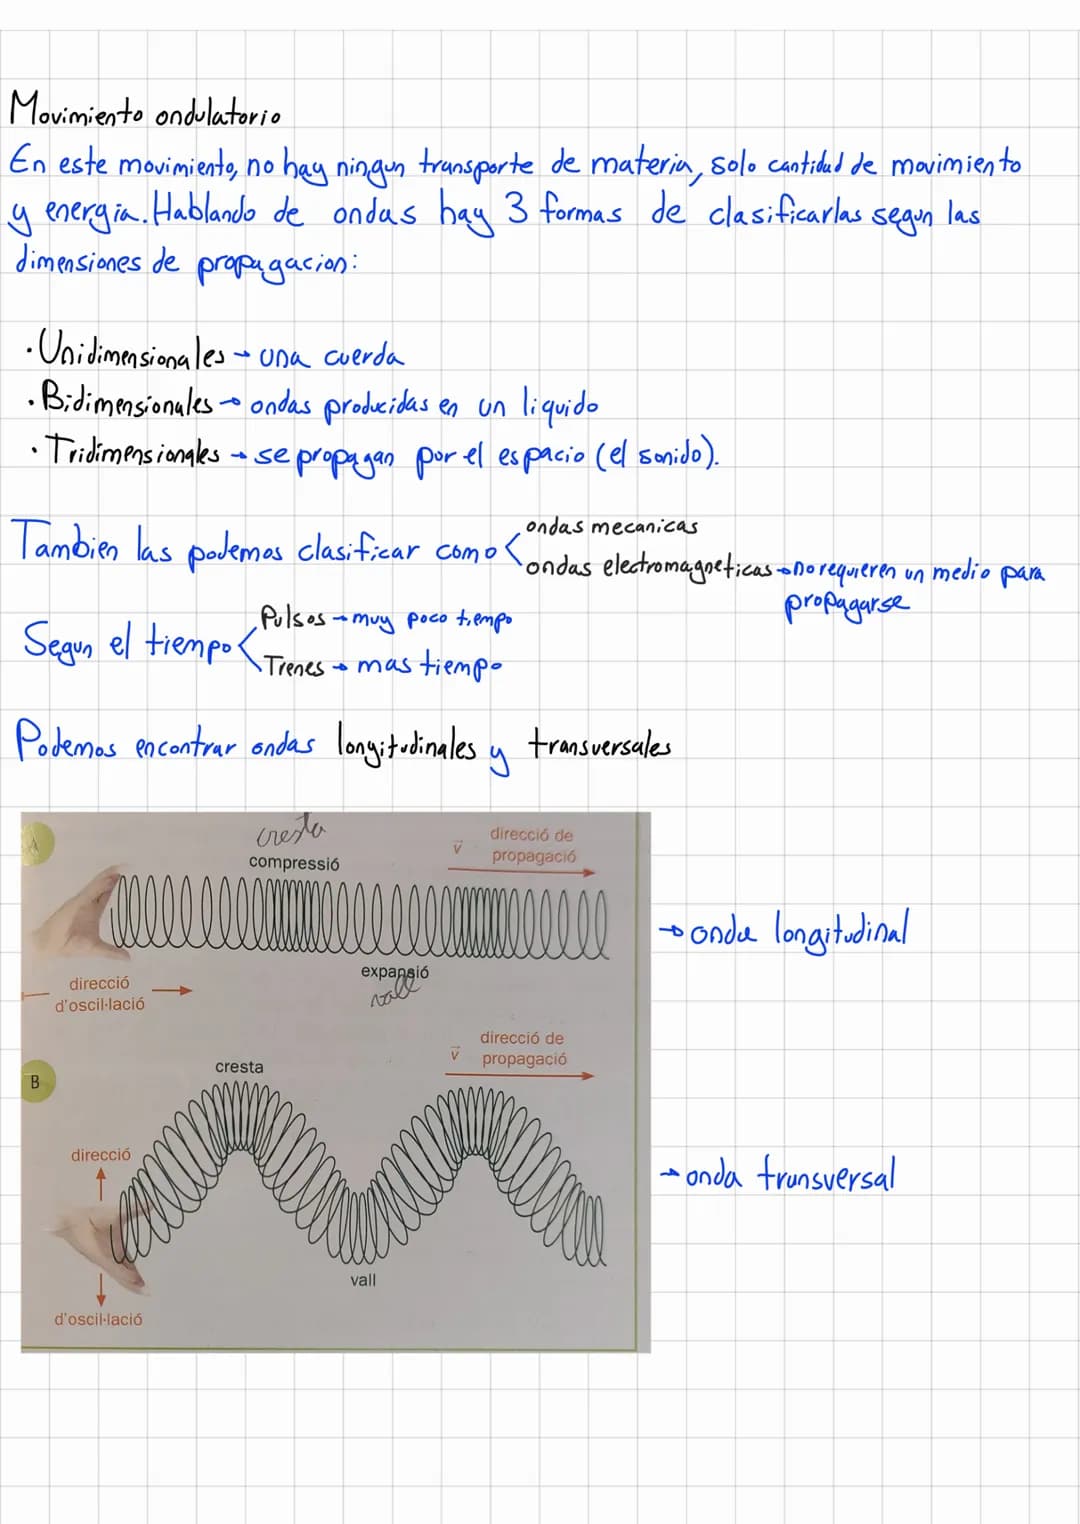 Movimiento ondulatorio
En este movimiento, no hay ningun transporte de materia, solo cantidad de movimiento
y energia. Hablando de ondas hay 3 formas de clasificarlas segun las
dimensiones de propagacion:
· Unidimensionales → una cuerda
· Bidimensionales → ondas producidas en un liquido
· Tridimensionales → se propagan por el espacio (el sonido).
Tambien las podemos clasificar como < ondas mecanicas
ondas electromagneticas → no requieren un medio para
propagarse
Segun el tiempo < Pulsos → muy poco tiempo
Trenes → mas tiempo
Podemos encontrar ondas longitudinales y transversales
A
cresta
compressió
v direcció de
propagació
→ onda longitudinal
expansió
vall
direcció
d'oscil·lació
B
cresta
v direcció de
propagació
direcció
→ onda transversal
vall
d'oscil·lació